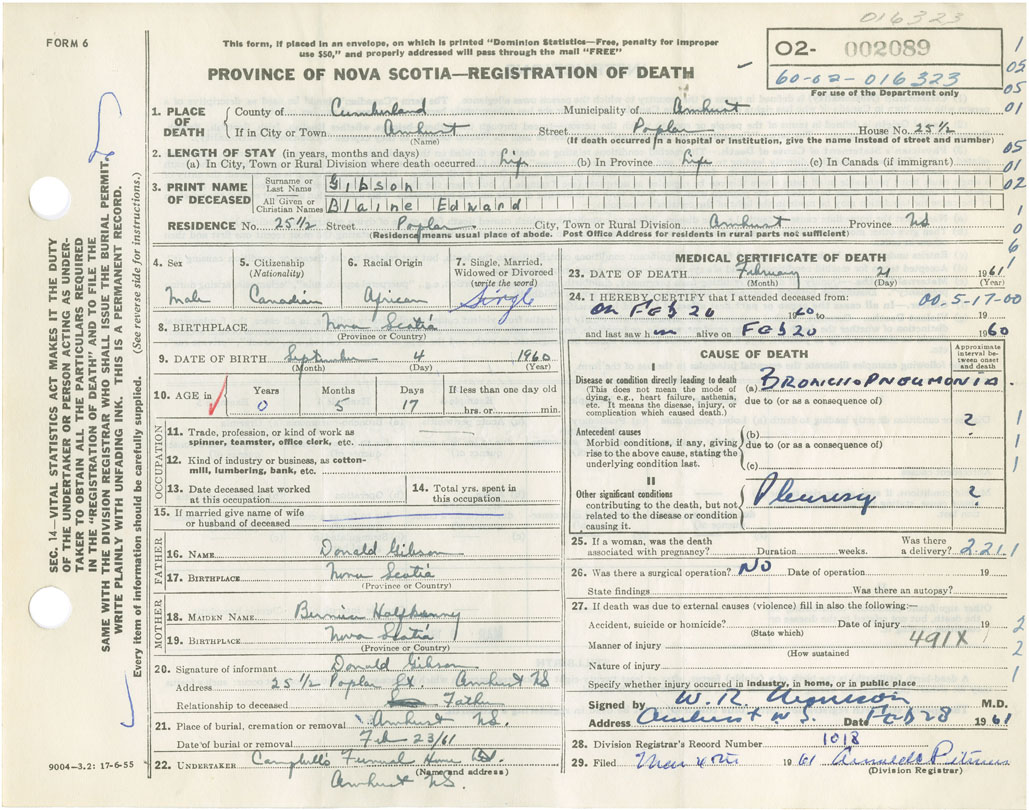 016323
FORM 6
This form, if placed in an envelope, on which is printed "Dominion Statistics—Free, penalty for improper
use $50," and properly addressed will pass through the mail "FREE"
02- 002089
60-02-016323
For use of the Department only
PROVINCE OF NOVA SCOTIA—REGISTRATION OF DEATH
1. PLACE OF DEATH
County of Cumberland Municipality of Amherst
If in City or Town Amherst Street Poplar House No. 25 1/2
(Name) (If death occurred in a hospital or institution, give the name instead of street and number)
2. LENGTH OF STAY (in years, months and days)
(a) In City, Town or Rural Division where death occurred Life (b) In Province Life (c) In Canada (if immigrant)
3. PRINT NAME OF DECEASED
Surname or Last Name Gibson
All Given or Christian Names Blaine Edward
RESIDENCE No. 25 1/2 Street Poplar City, Town or Rural Division Amherst Province NS
(Residence means usual place of abode. Post Office Address for residents in rural parts not sufficient)
4. Sex
Male
5. Citizenship
(Nationality)
Canadian
6. Racial Origin
African
7. Single, Married,
Widowed or Divorced
(write the word)
Single
8. BIRTHPLACE Nova Scotia
(Province or Country)
9. DATE OF BIRTH September 4 1960
(Month) (Day) (Year)
10. AGE in
Years Months Days If less than one day old
0 5 17 hrs. or min.
OCCUPATION
11. Trade, profession, or kind of work as
spinner, teamster, office clerk, etc.
12. Kind of industry or business, as cotton-
mill, lumbering, bank, etc.
13. Date deceased last worked
at this occupation
14. Total yrs. spent in
this occupation
15. If married give name of wife
or husband of deceased
FATHER
16. NAME Donald Gibson
17. BIRTHPLACE Nova Scotia
(Province or Country)
MOTHER
18. MAIDEN NAME Bernice
19. BIRTHPLACE Nova Scotia
(Province or Country)
20. Signature of informant Donald Gibson
Address 25 1/2 Poplar St. Amherst NS
Relationship to deceased Father
21. Place of burial, cremation or removal Amherst NS.
Date of burial or removal Feb 23/61
22. UNDERTAKER Campbell's Funeral Home Ltd.
(Name and address)
Amherst NS.
MEDICAL CERTIFICATE OF DEATH
23. DATE OF DEATH February 21 1961
(Month) (Day) (Year)
24. I HEREBY CERTIFY that I attended deceased from: 00-5-17-00
on FEB 20 1960 to 19
and last saw h m alive on FEB 20 1960
CAUSE OF DEATH
Approximate
interval be-
tween onset
and death
I
Disease or condition directly leading to death
(This does not mean the mode of
dying, e.g., heart failure, asthenia,
etc. It means the disease, injury, or
complication which caused death.)
(a) BRONCHOPNEUMONIA.
due to (or as a consequence of)
Antecedent causes
Morbid conditions, if any, giving
rise to the above cause, stating the
underlying condition last.
(b) ?
due to (or as a consequence of)
(c)
II
Other significant conditions
contributing to the death, but not
related to the disease or condition
causing it.
Pleuresy ?
25. If a woman, was the death
associated with pregnancy? Duration weeks. Was there
a delivery? 2.21.1
26. Was there a surgical operation? NO Date of operation 19
State findings Was there an autopsy?
27. If death was due to external causes (violence) fill in also the following:—
Accident, suicide or homicide? Date of injury 19
(State which)
Manner of injury 491X
(How sustained
Nature of injury
Specify whether injury occurred in industry, in home, or in public place
Signed by W. R. M.D.
Address Amherst N S. Date FEB 28 1961
28. Division Registrar's Record Number 1018
29. Filed 1961
(Division Registrar)
1
05
05
01
05
01
02
1
0
6
1
1
1
1
1
2
2
1
SEC. 14—VITAL STATISTICS ACT MAKES IT THE DUTY
OF THE UNDERTAKER OR PERSON ACTING AS UNDER-
TAKER TO OBTAIN ALL THE PARTICULARS REQUIRED
IN THE "REGISTRATION OF DEATH" AND TO FILE THE
SAME WITH THE DIVISION REGISTRAR WHO SHALL ISSUE THE BURIAL PERMIT.
WRITE PLAINLY WITH UNFADING INK. THIS IS A PERMANENT RECORD.
Every item of information should be carefully supplied. (See reverse side for instructions.)
9004-3.2: 17-6-55